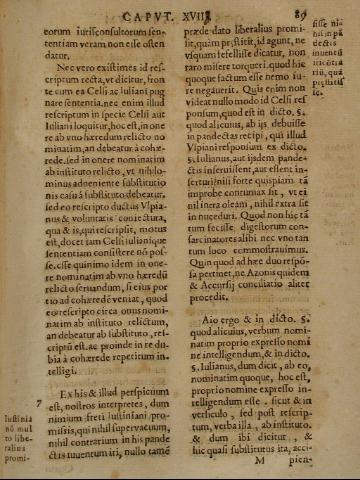 CAPVT. XVIII. 89
eorum iurisconsultorum sen-
tentiam veram non esse osten
datur.
Nec vero existimes id res-
criptum recta, vt dicitur, fron
te cum ea Celsi ac Iuliani pug
nare sententia. nec enim illud
rescriptum in specie Celsi aut
Iuliani loquitur, hoc est, in one
re ab vno hærede relicto no
minatim, an debeatur à cohæ-
rede. sed in onere nominatim
ab instituto relicto, vt nihilo-
minus adueniente substitutio
nis casu à substituto debeatur.
sed eo rescripto ductus Vlpia-
nus & voluntatis coniectura,
qua & is, qui rescripsit, motus
est, docet iam Celsi iulianique
sententiam consistere nō pos-
se. esse quinimo idem in one-
re nominatim ab vno hæredū
relicto seruandum, si eius por
tio ad cohæredē veniat, quod
eo rescripto circa onus nomi-
natim ab instituto relictum,
an debeatur ab substituto, res-
criptū est. ac proinde in re du-
bia à cohærede repetitum in-
telligi.
7 Ex his & illud perspicuum
est, nostros interpretes, dum
nimium freti Iustiniani pro-
missis, qui nihil superuacuum,
nihil contrarium in his pande
ctis inuentum iri, nullo tamē
Iustinia
nū mul
to libe-
ralius
promi-
præde dato liberalius promi-
sit, quàm præstitit, id agunt, ne
vsquam fefellisse dicatur, non
raro misere torqueri. quod hic
quoque factum esse nemo iu-
re negauerit. Quis enim non
videat nullo modo id Celsi res
ponsum, quod est in dicto. §.
quod alicuius, ab ijs debuisse
in pandectas recipi, qui illud
Vlpiani responsum ex dicto.
§. Iulianus, aut ijsdem pande-
ctis inseruissent, aut essent in-
serturi? nisi forte quispiam tā
improbe contumax sit, vt ei
nil intra oleam, nihil extra sit
in nuce duri. Quod non hic tā
tum fecisse, digestorum con-
sarcinatores alibi nec vno tan
tum loco commostrauimus.
Quin quod ad hæc duo respō-
sa pertinet, ne Azonis quidem
& Accursij conciliatio aliter
procedit.
Aio ergo & in dicto. §.
quod alicuius, verbum nomi-
natum proprio expresso nomi
ne intelligendum, & in dicto.
§. Iulianus, dum dicit, ab eo,
nominatim quoque, hoc est,
proprio nomine expresso in-
telligendum esse. sicut & in
versiculo, sed post rescrip-
tum, verba illa, ab instituto.
& dum ibi dicitur, &
hic quasi substitutus ita, acci-
M pien-
sisse ni-
hil in pā
dectis
inuentū
iri cōtra
riū, quā
præstitis
se.